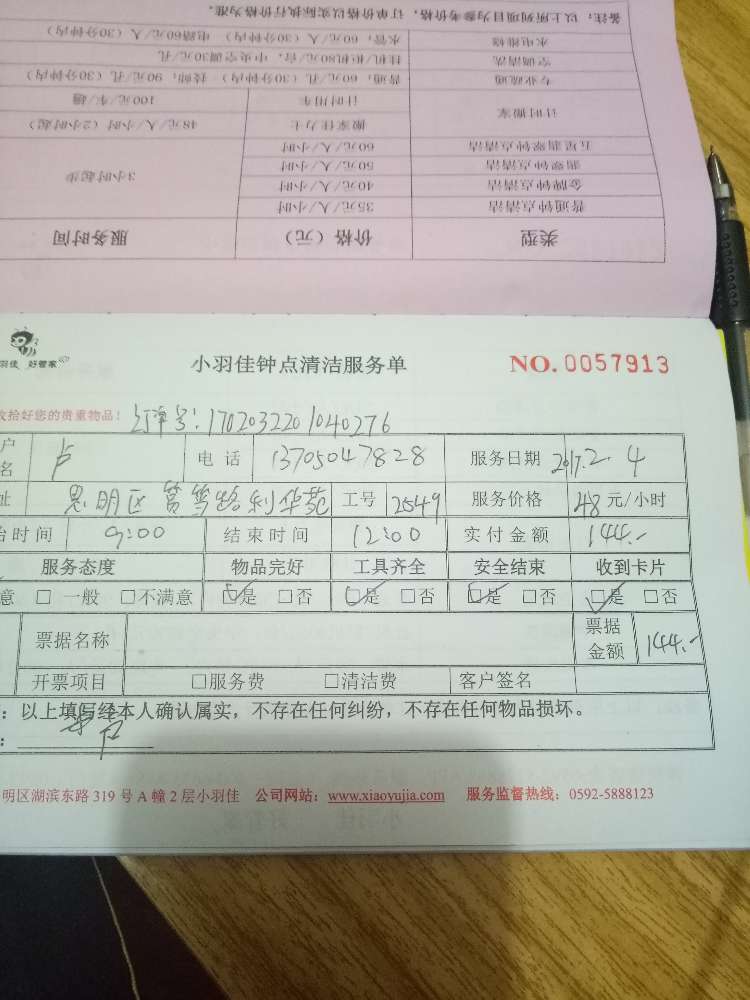 备注：以上所列项目为参考价格，订单价格以实际执行价格为准。
水电维修 水管，60元/人（30分钟内） 电路60元/人（30分钟内）
空调清洗 挂机/柜机80元/台，中央空调30元/孔
专业疏通 普通，60元/孔（30分钟内） 技师，90元/孔（30分钟内）
计时搬家 计时用车 100元/车/趟
搬家佳力士 48元/人/小时（2小时起）
五星翡翠钟点清洁 60元/人/小时
翡翠钟点清洁 50元/人/小时
金牌钟点清洁 40元/人/小时
普通钟点清洁 35元/人/小时 3小时起步
类型 价格（元） 服务时间
羽佳 好管家
小羽佳钟点清洁服务单 NO. 0057913
收拾好您的贵重物品！ 订单号：1702032201040276
户名 卢 电话 13705047828 服务日期 2017.2.4
址 思明区 利华苑 工号 2549 服务价格 48 元/小时
始时间 9:00 结束时间 12:00 实付金额 144.-
服务态度 物品完好 工具齐全 安全结束 收到卡片
意 □ 一般 □不满意 □是 □否 □是 □否 □是 □否 □是 □否
票据名称 票据金额 144.-
开票项目 □服务费 □清洁费 客户签名
：以上填写经本人确认属实，不存在任何纠纷，不存在任何物品损坏。
明区湖滨东路 319 号 A 幢 2 层小羽佳 公司网站：www.xiaoyujia.com 服务监督热线：0592-5888123